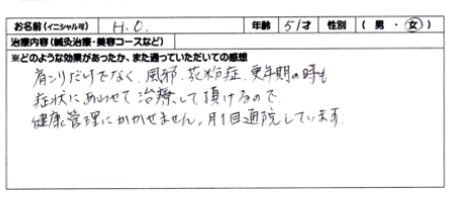 お名前(イニシャル可) H.O. 年齢 51才 性別 (男・女)
治療内容(鍼灸治療・美容コースなど)
※どのような効果があったか、また通っていただいての感想
肩こりだけでなく、風邪、花粉症、更年期の時も
症状にあわせて治療して頂けるので
健康管理にかかせません。月1回通院しています。